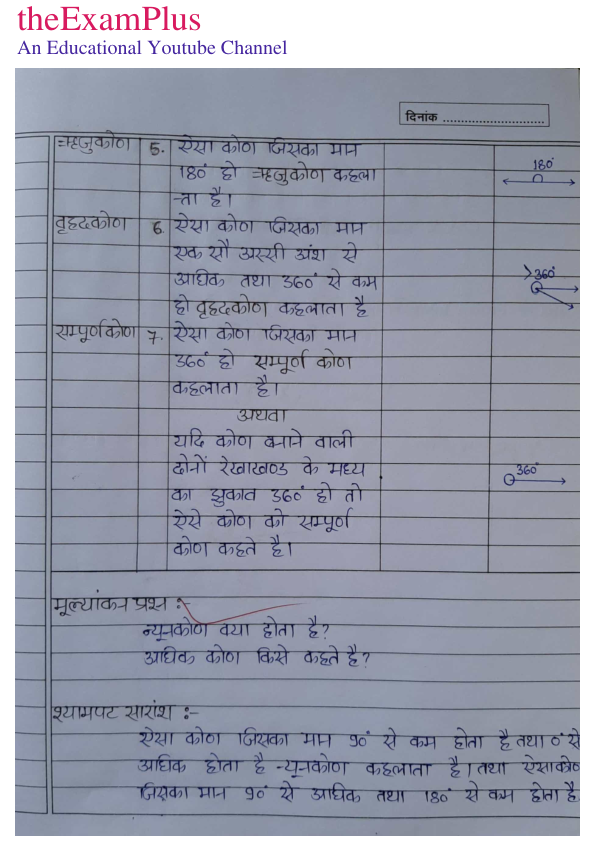 theExamPlus
An Educational Youtube Channel
दिनांक ..............................
ऋजुकोण 5. ऐसा कोण जिसका मान
180° हो ऋजुकोण कहला
-ता है।
180°
वृहदकोण 6. ऐसा कोण जिसका मान
एक सौ अस्सी अंश से
अधिक तथा 360° से कम
हो वृहदकोण कहलाता है
>360°
सम्पूर्णकोण 7. ऐसा कोण जिसका मान
360° हो सम्पूर्ण कोण
कहलाता है।
अथवा
यदि कोण बनाने वाली
दोनों रेखाखण्ड के मध्य
का झुकाव 360° हो तो
ऐसे कोण को सम्पूर्ण
कोण कहते है।
360°
मूल्यांकन प्रश्न :-
न्यूनकोण क्या होता है?
अधिक कोण किसे कहते है?
श्यामपट सारांश :-
ऐसा कोण जिसका मान 90° से कम होता है तथा 0° से
अधिक होता है न्यूनकोण कहलाता है। तथा ऐसा कोण
जिसका मान 90° से अधिक तथा 180° से कम होता है